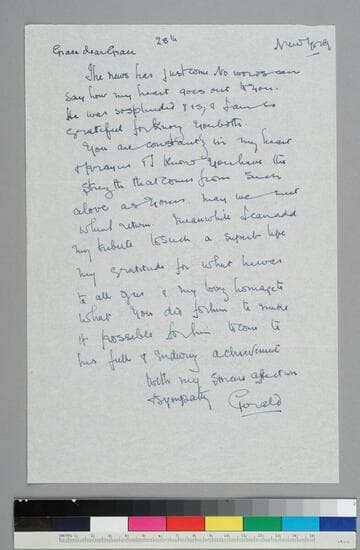 28th
New York
Grace dear Grace
The news has just come No words can
say how my heart goes out to you.
He was so splendid & I am so
grateful for knowing you both.
You are constantly in my heart
& prayers & I know you have the
strength that comes from such
above as yours. May we meet
when I return. Meanwhile I can add
my tribute to such a superb life
my gratitude for what he was
to all of us & my loving homage to
what you did for him to make
it possible for him to come to
his full & enduring achievement
With my sincere affection
& sympathy Gerald